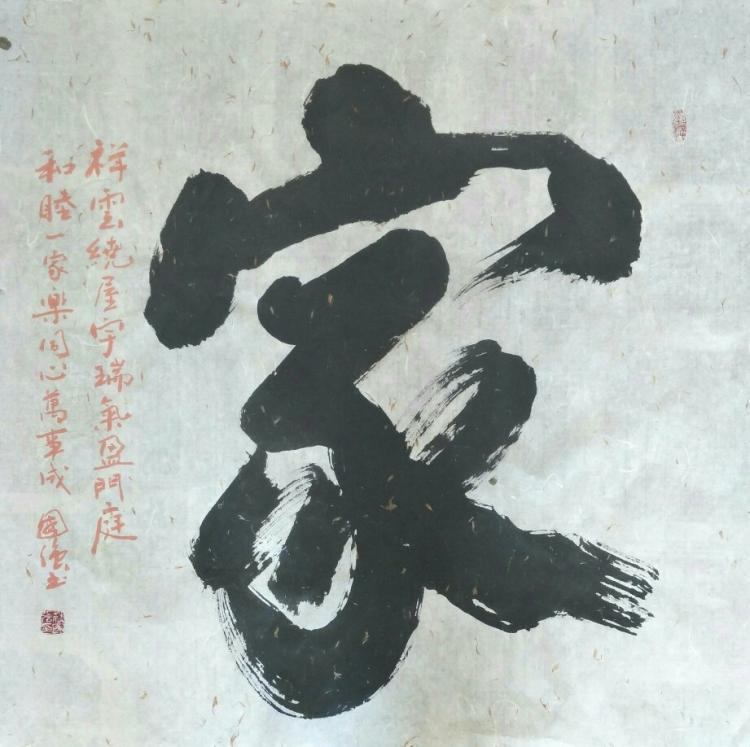 家
祥雲繞屋宇瑞氣盈門庭
和睦一家樂同心萬事成 國強书